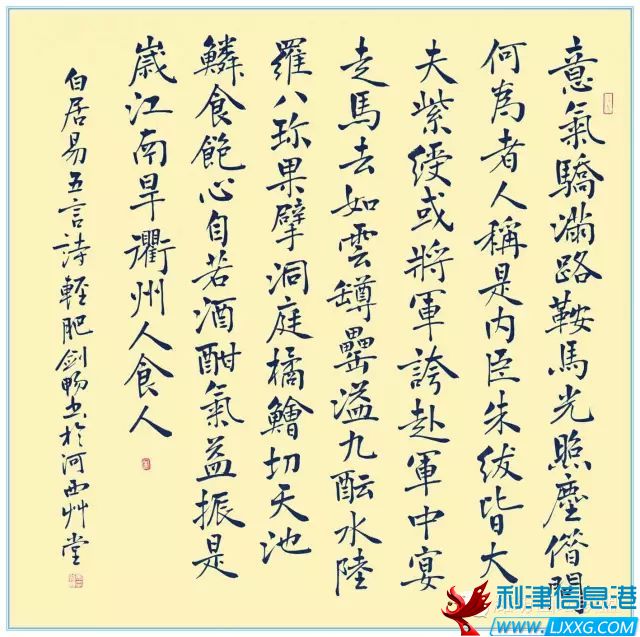 意氣驕滿路鞍馬光照塵借問
何為者人稱是内臣朱紱皆大
夫紫綬或將軍誇赴軍中宴
走馬去如雲罇罍溢九酝水陸
羅八珎果擘洞庭橘鱠切天池
鱗食飽心自若酒酣氣益振是
歲江南旱衢州人食人
白居易五言詩輕肥劍暢书於河西艸堂
利津信息港
WWW.LJXXG.COM